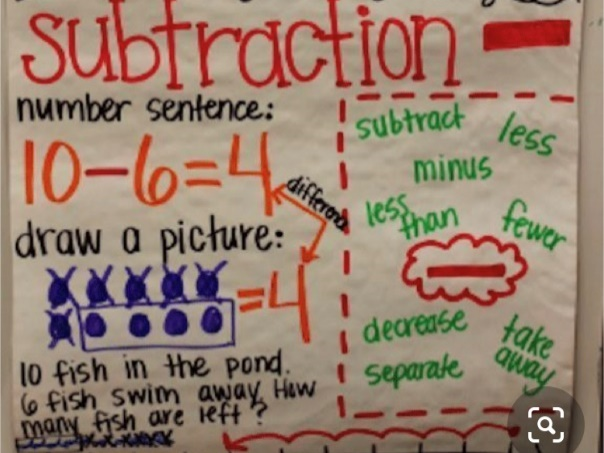 subtraction
number sentence:
10-6=4
difference
draw a picture:
=4
10 fish in the pond.
6 fish swim away. How
many fish are left?
subtract
less
minus
less
than
fewer
decrease
take
away
separate